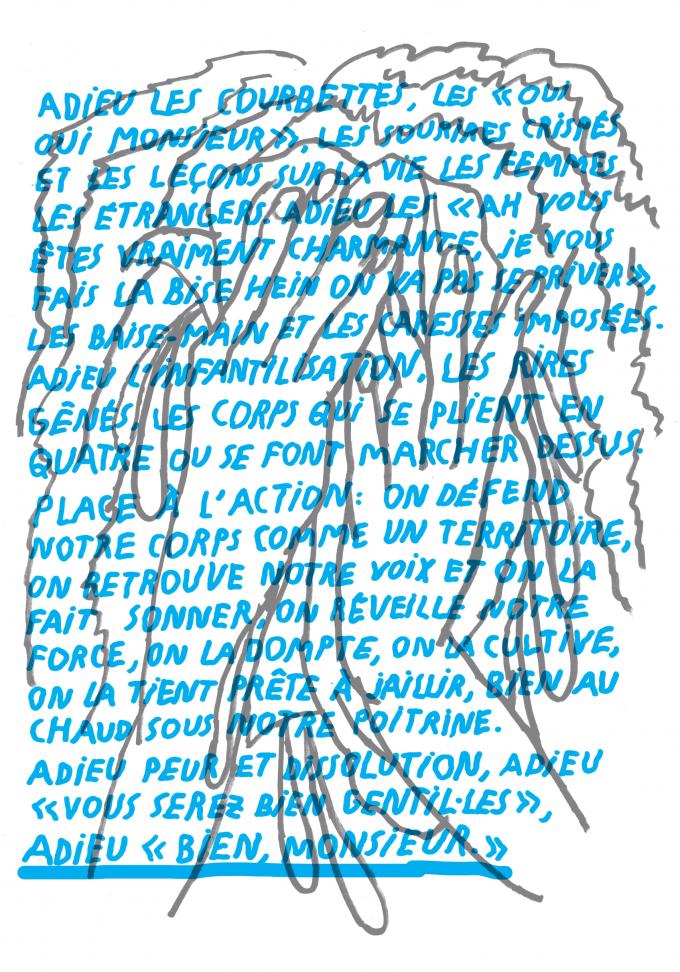 ADIEU LES COURBETTES, LES « OUI
OUI MONSIEUR », LES SOURIRES CRISPÉS
ET LES LEÇONS SUR LA VIE LES FEMMES
LES ÉTRANGERS. ADIEU LES « AH VOUS
ÊTES VRAIMENT CHARMANTE, JE VOUS
FAIS LA BISE HEIN ON VA PAS SE PRIVER »,
LES BAISE-MAIN ET LES CARESSES IMPOSÉES.
ADIEU L'INFANTILISATION, LES RIRES
GÊNÉS, LES CORPS QUI SE PLIENT EN
QUATRE OU SE FONT MARCHER DESSUS.
PLACE À L'ACTION: ON DÉFEND
NOTRE CORPS COMME UN TERRITOIRE,
ON RETROUVE NOTRE VOIX ET ON LA
FAIT SONNER, ON RÉVEILLE NOTRE
FORCE, ON LA DOMPTE, ON LA CULTIVE,
ON LA TIENT PRÊTE À JAILLIR, BIEN AU
CHAUD SOUS NOTRE POITRINE.
ADIEU PEUR ET DISSOLUTION, ADIEU
« VOUS SEREZ BIEN GENTIL·LES »,
ADIEU « BIEN, MONSIEUR. »